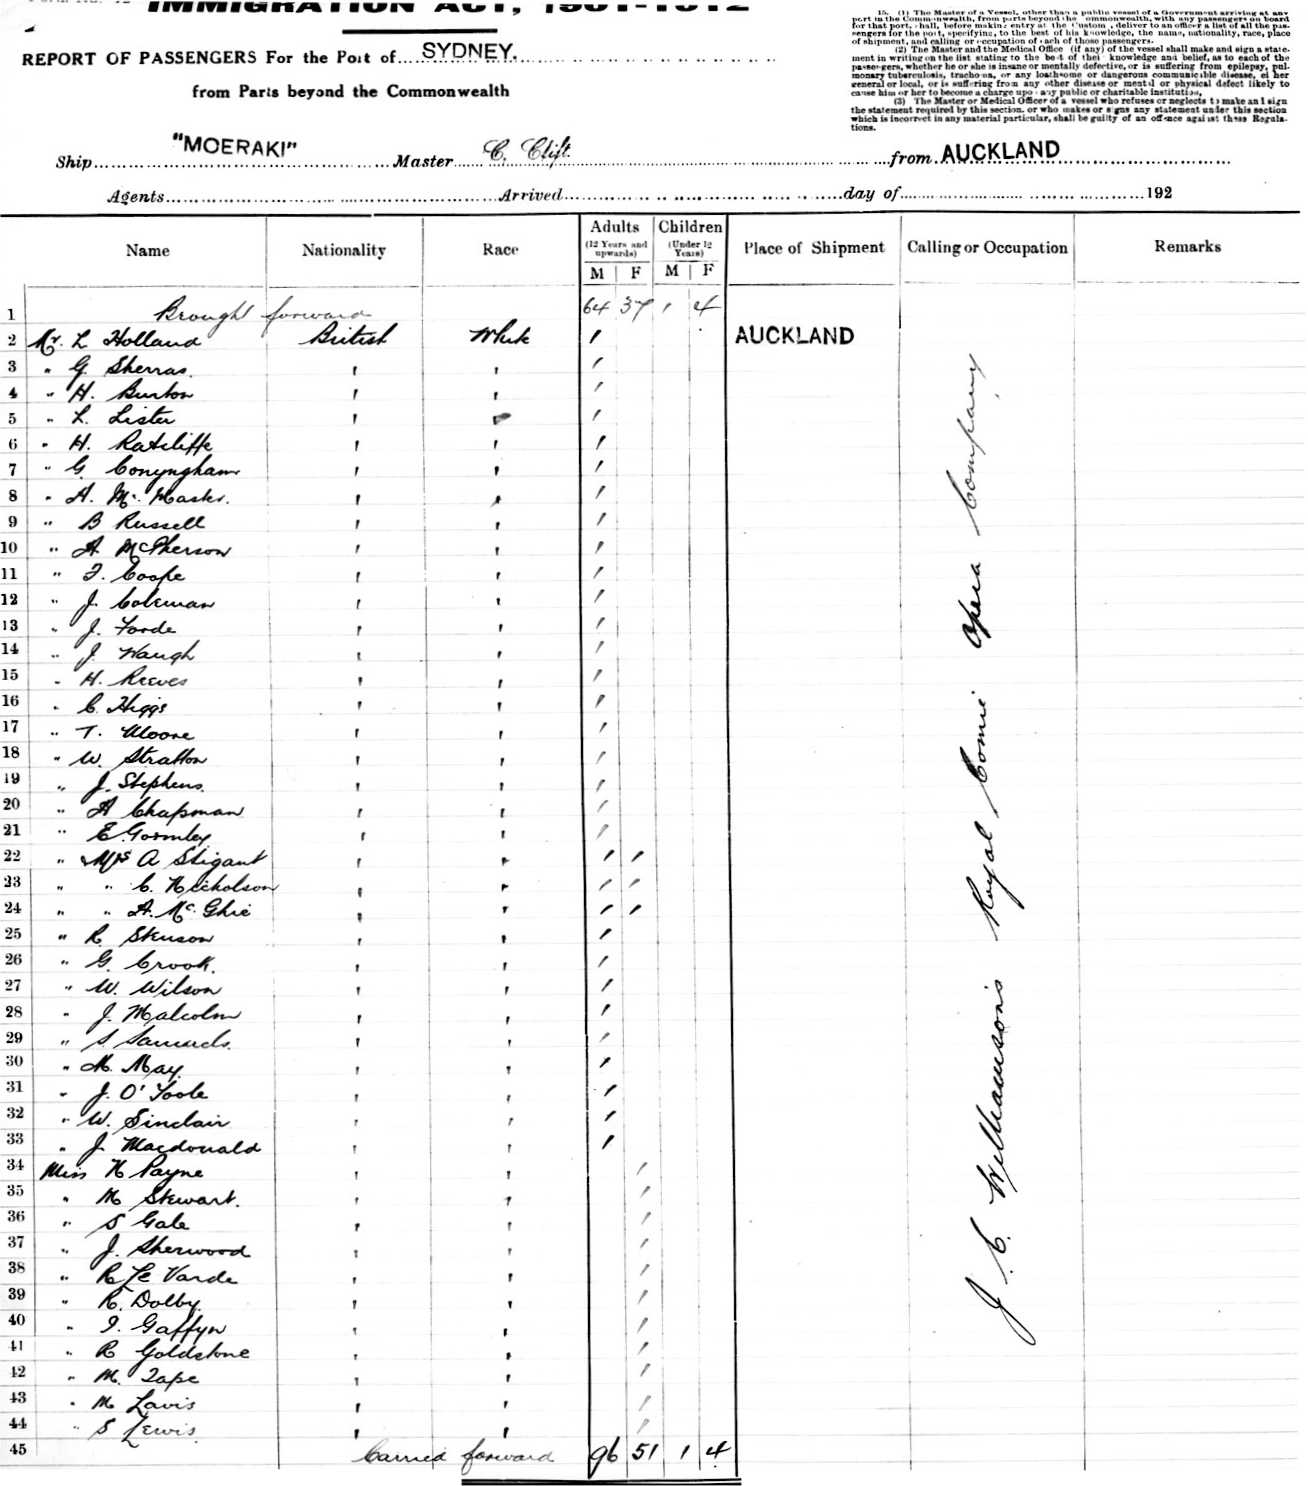 IMMIGRATION ACT, 1901-1912
REPORT OF PASSENGERS For the Port of SYDNEY.
from Parts beyond the Commonwealth
15. (1) The Master of a Vessel, other than a public vessel of a Government arriving at any
port in the Commonwealth, from parts beyond the Commonwealth, with any passengers on board
for that port, shall, before making entry at the Customs, deliver to an officer a list of all the pas-
sengers for the port, specifying, to the best of his knowledge, the name, nationality, race, place
of shipment, and calling or occupation of each of those passengers.
(2) The Master and the Medical Office (if any) of the vessel shall make and sign a state-
ment in writing on the list stating to the best of their knowledge and belief, as to each of the
passengers, whether he or she is insane or mentally defective, or is suffering from epilepsy, pul-
monary tuberculosis, trachoma, or any loathsome or dangerous communicable disease, either
general or local, or is suffering from any other disease or mental or physical defect likely to
cause him or her to become a charge upon any public or charitable institution.
(3) The Master or Medical Officer of a vessel who refuses or neglects to make and sign
the statement required by this section, or who makes or signs any statement under this section
which is incorrect in any material particular, shall be guilty of an offence against these Regula-
tions.
Ship "MOERAKI" Master C. Clift. from AUCKLAND
Agents Arrived day of 192
Name Nationality Race Adults (12 Years and upwards) M F Children (Under 12 Years) M F Place of Shipment Calling or Occupation Remarks
1 Brought forward 64 37 1 4
2 Mr. L Holland British White 1 AUCKLAND
3 " G. Sherras. " " 1
4 " H. Burton " " 1
5 " L. Lister " " 1
6 " H. Ratcliffe " " 1
7 " G. Conyngham " " 1
8 " A. Mc. Master. " " 1
9 " B Russell " " 1
10 " A. McPherson " " 1
11 " F. Cooke " " 1
12 " J. Coleman " " 1
13 " J. Forde " " 1
14 " J Waugh " " 1
15 " H. Reeves " " 1
16 " C. Higgs " " 1
17 " T. Moore " " 1
18 " W. Stratton " " 1
19 " J. Stephens. " " 1
20 " A Chapman " " 1
21 " E Gormley " " 1
22 " & Mrs A Stigant " " 1 1
23 " " C. Nicholson " " 1 1
24 " " A. Mc. Ghie " " 1 1
25 " R. Stenson " " 1
26 " G. Crook. " " 1
27 " W. Wilson " " 1
28 " J. Malcolm " " 1
29 " S. Samuels. " " 1
30 " M. May. " " 1
31 " J. O'Toole " " 1
32 " W. Sinclair " " 1
33 " J. Macdonald " " 1
34 Miss N Payne " " 1
35 " M Stewart. " " 1
36 " S Gale " " 1
37 " J. Sherwood " " 1
38 " R Le Varde " " 1
39 " R. Dolby. " " 1
40 " I. Gaffyn " " 1
41 " R Goldstone " " 1
42 " M. Tape " " 1
43 " M Lavis " " 1
44 " S Lewis. " " 1
45 Carried forward 96 51 1 4
J. C. Williamson's Royal Comic Opera Company